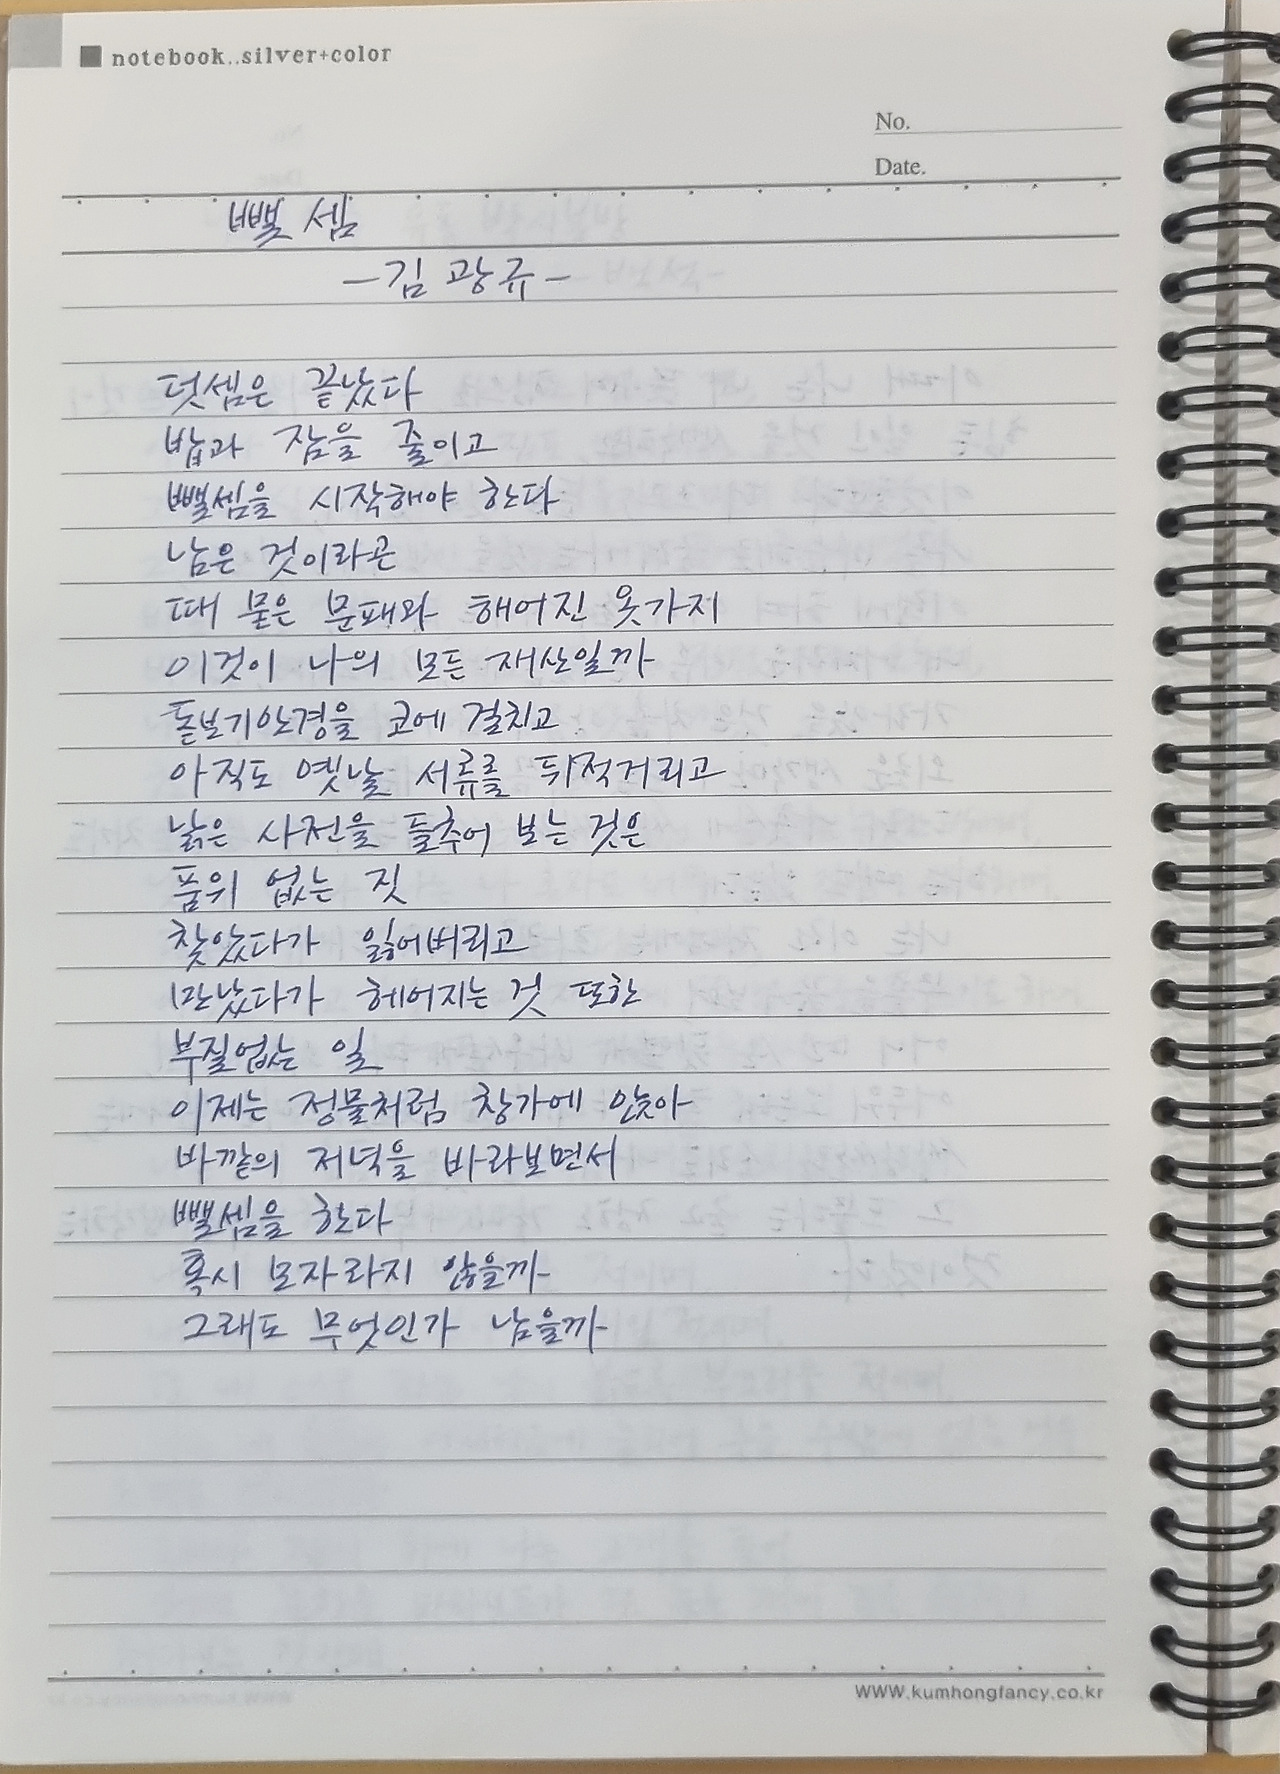 notebook..silver+color
No.
Date.
뺄 셈
-김 광규-
덧셈은 끝났다
밥과 잠을 줄이고
뺄셈을 시작해야 한다
남은 것이라곤
때 묻은 문패와 해어진 옷가지
이것이 나의 모든 재산일까
돋보기안경을 코에 걸치고
아직도 옛날 서류를 뒤적거리고
낡은 사전을 들추어 보는 것은
품위 없는 짓
찾았다가 잃어버리고
만났다가 헤어지는 것 또한
부질없는 일
이제는 정물처럼 창가에 앉아
바깥의 저녁을 바라보면서
뺄셈을 한다
혹시 모자라지 않을까
그래도 무엇인가 남을까
www.kumhongfancy.co.kr